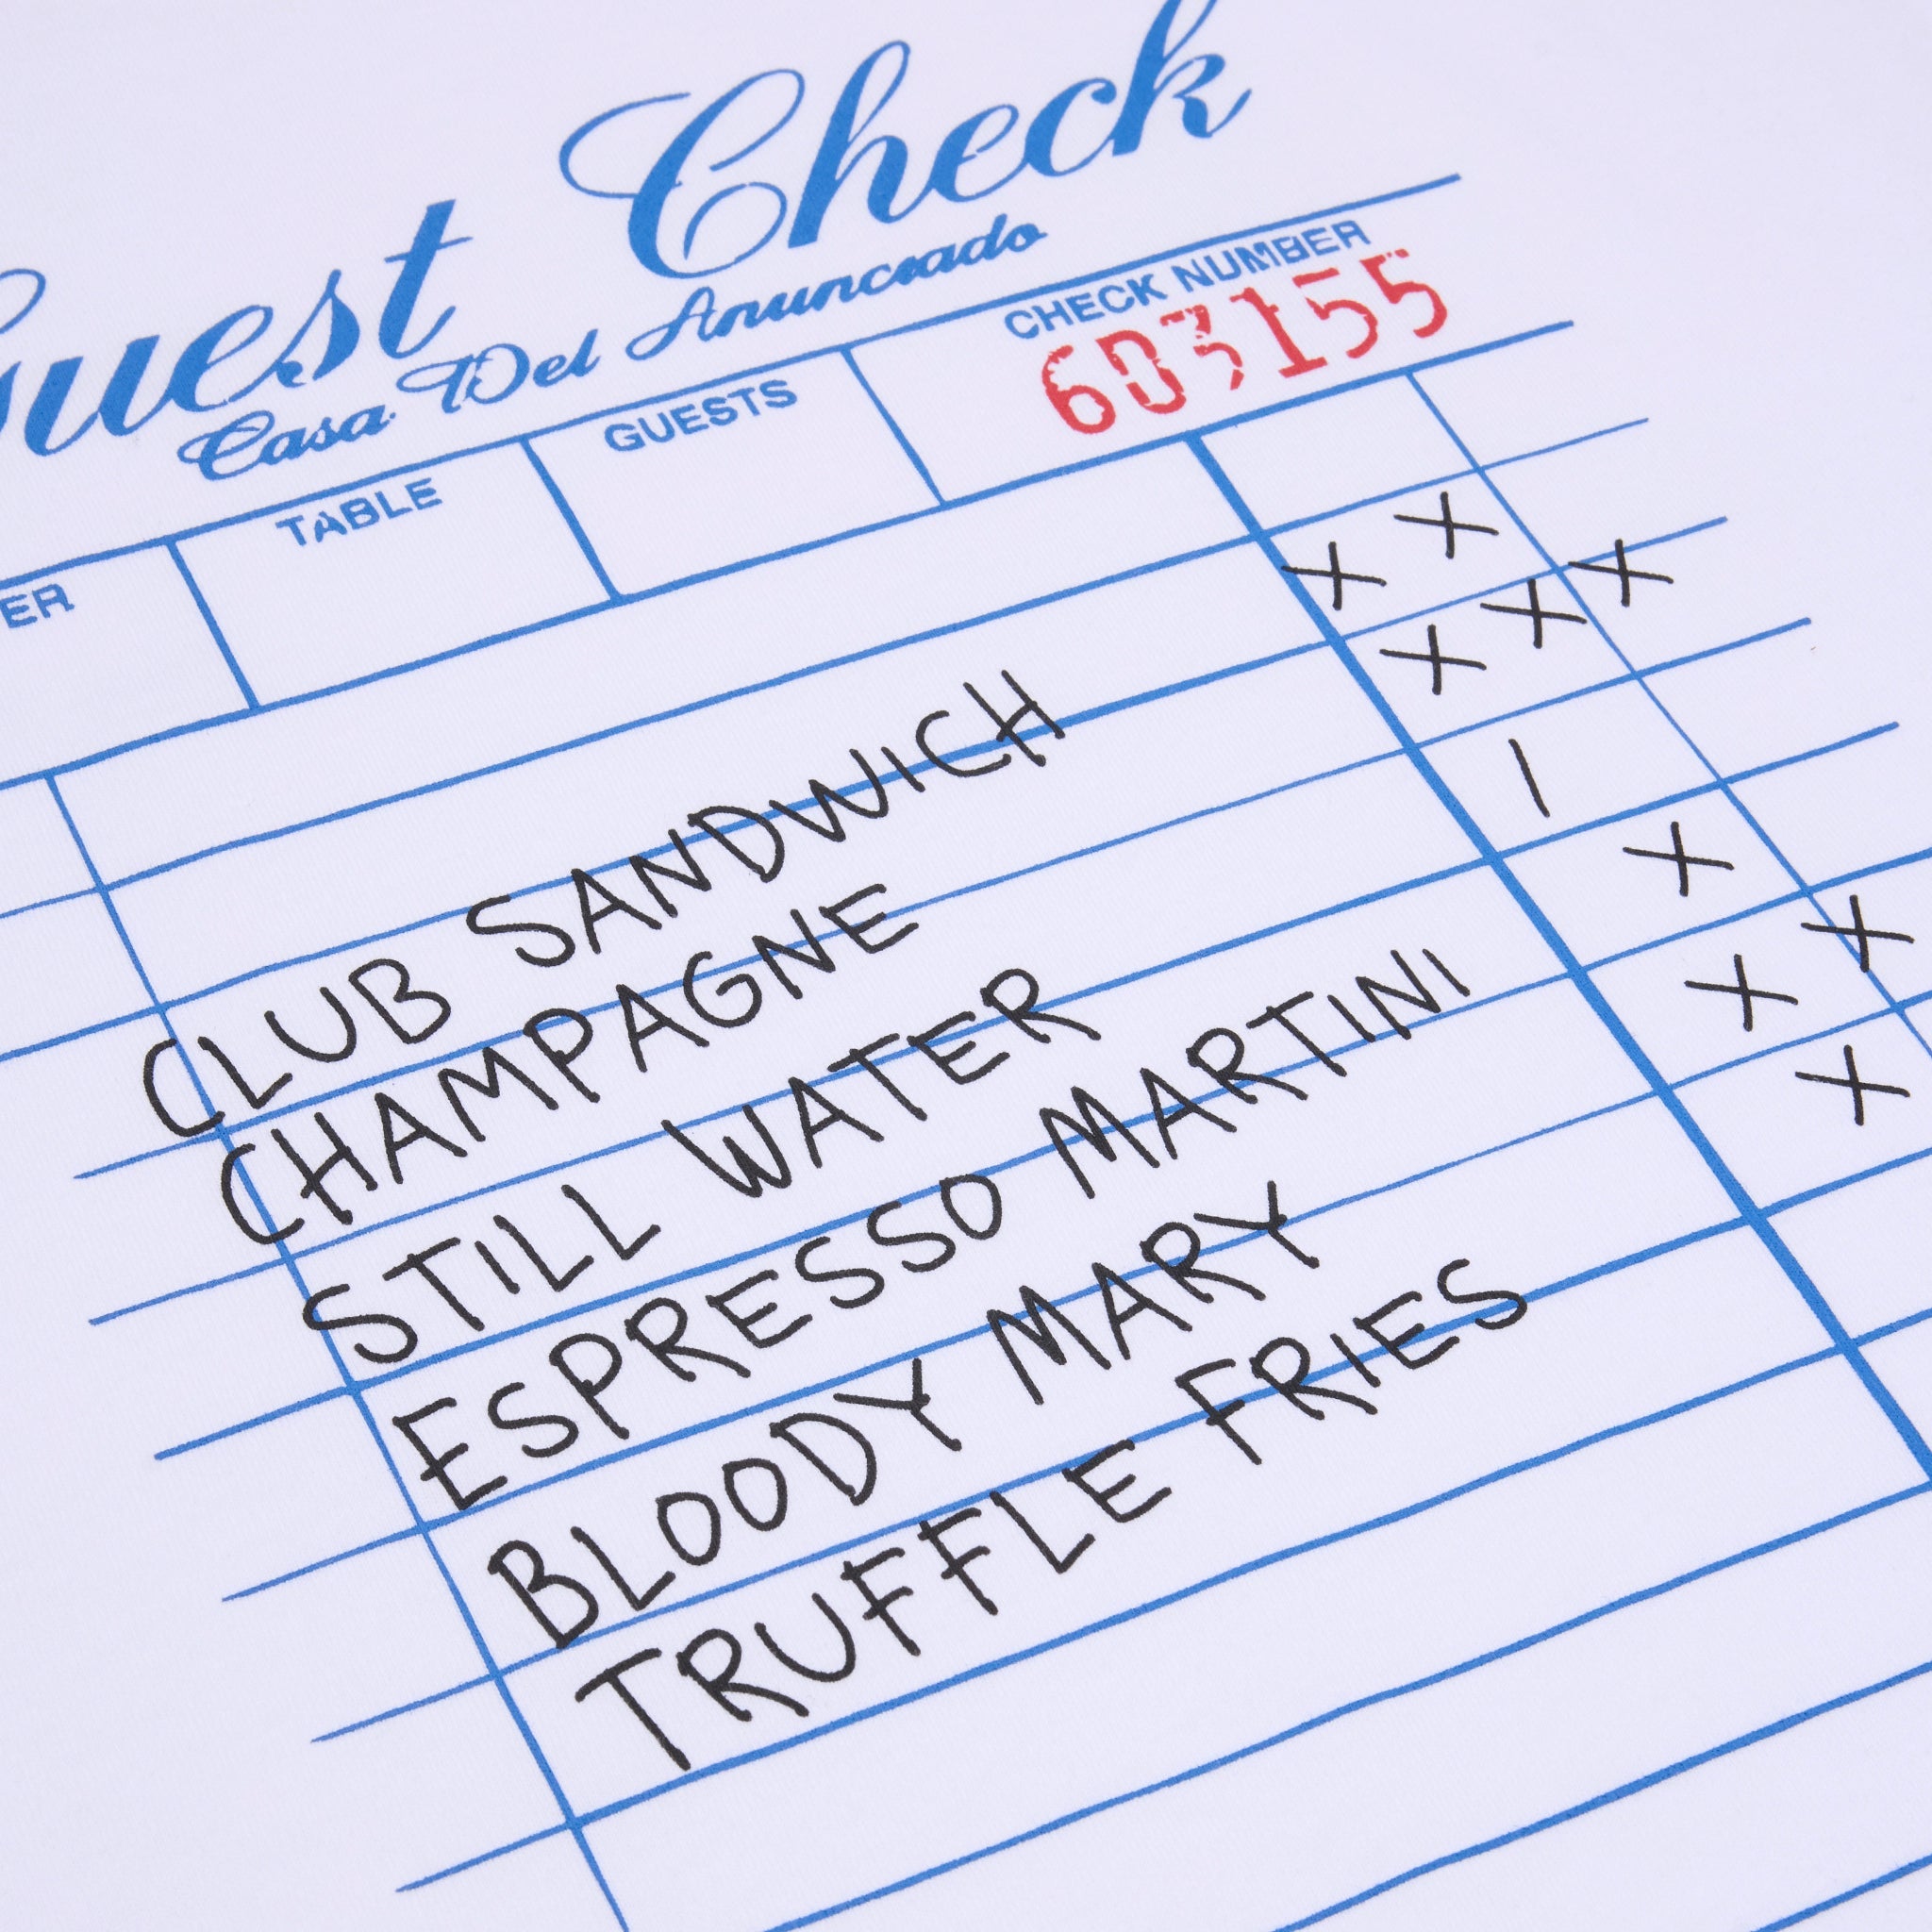 Guest Check
Casa Del Anunciado
ER TABLE GUESTS CHECK NUMBER
603155
CLUB SANDWICH X X
CHAMPAGNE X X X
STILL WATER I
ESPRESSO MARTINI X
BLOODY MARY X X
TRUFFLE FRIES X